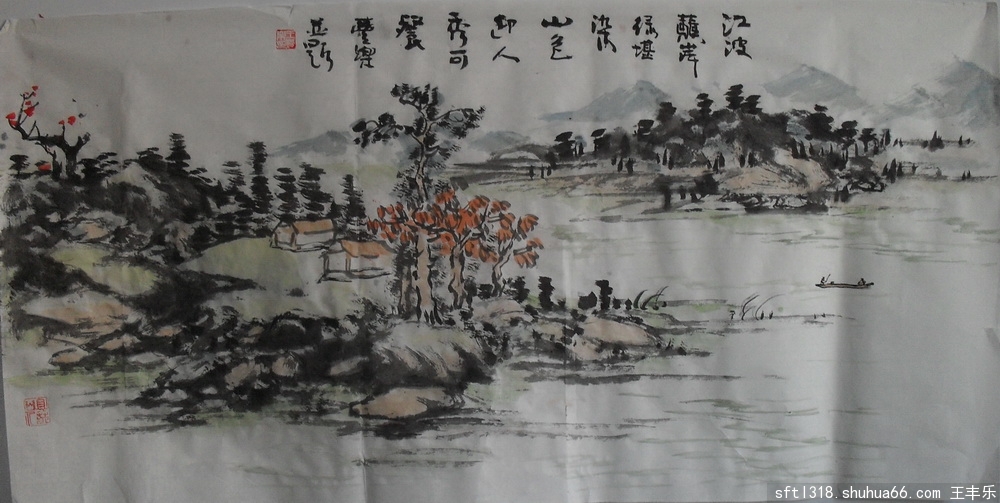 江波
蘸岸
绿堪
染
山色
迎人
秀可
餐
豐樂
並題
sftl318.shuhua66.com 王丰乐